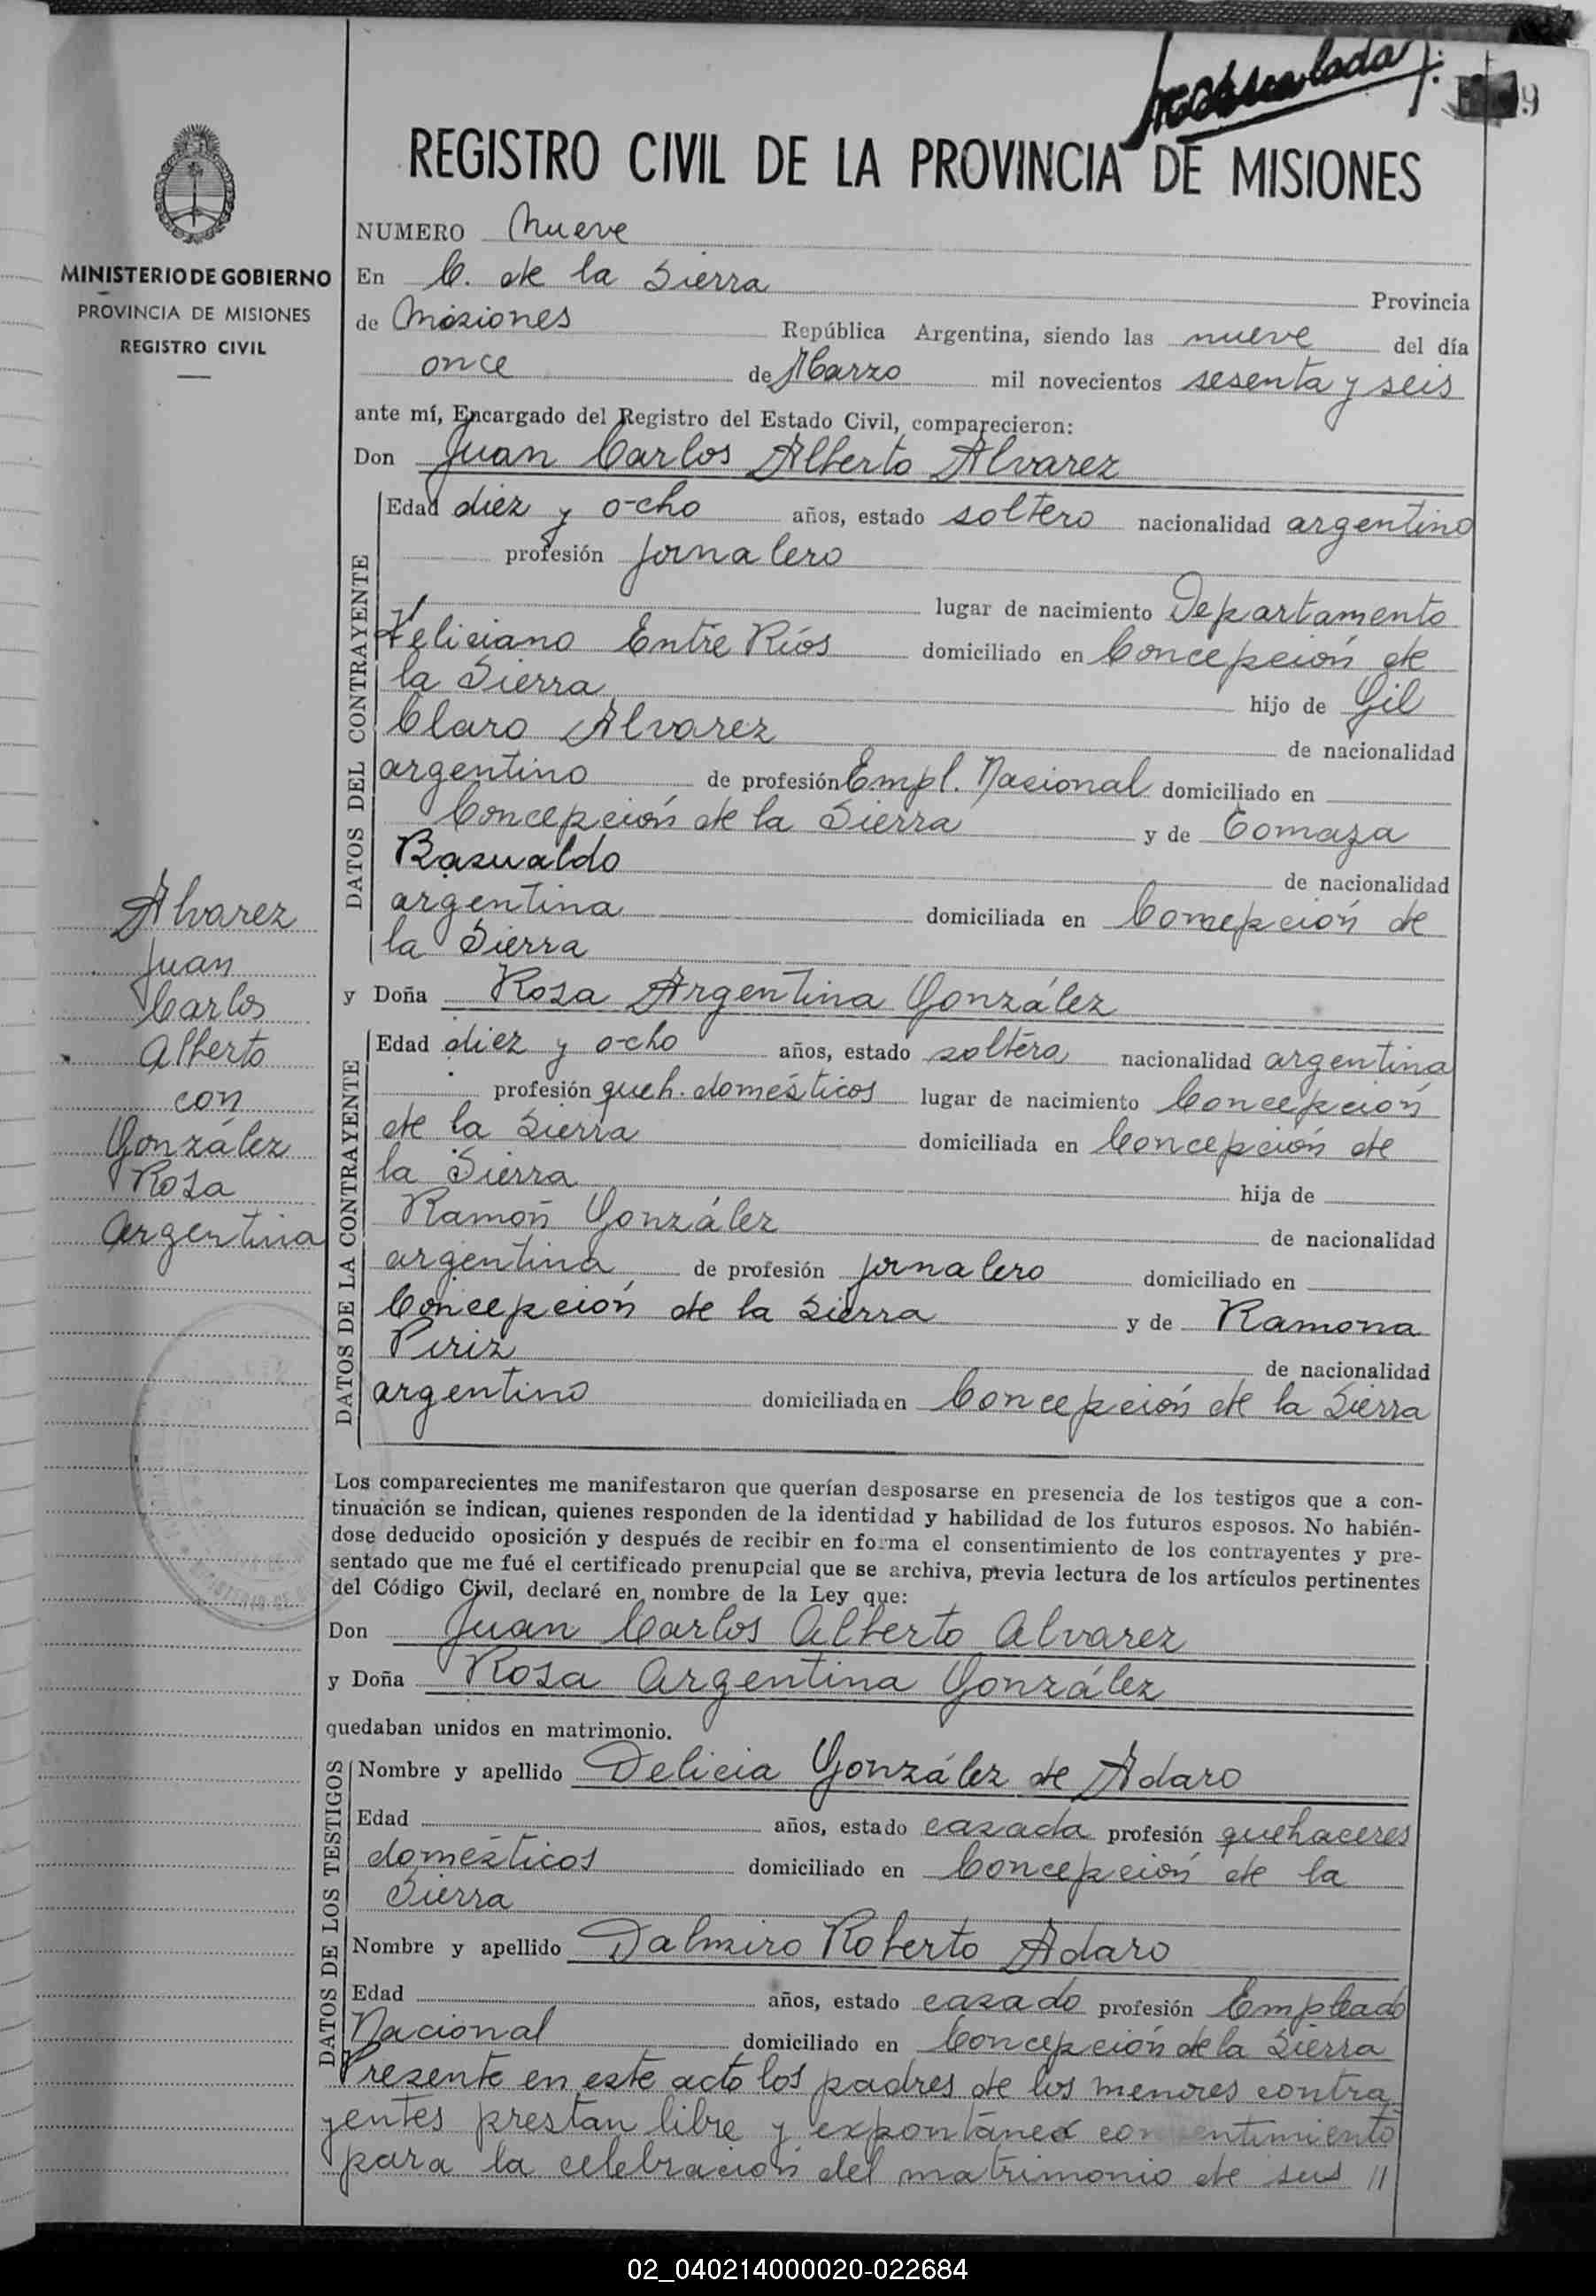 9
REGISTRO CIVIL DE LA PROVINCIA DE MISIONES
MINISTERIO DE GOBIERNO
PROVINCIA DE MISIONES
REGISTRO CIVIL
NUMERO Nueve
En C. de la Sierra Provincia
de Misiones República Argentina, siendo las nueve del día
once de Marzo mil novecientos sesenta y seis
ante mí, Encargado del Registro del Estado Civil, comparecieron:
Don Juan Carlos Alberto Alvarez
DATOS DEL CONTRAYENTE
Edad diez y ocho años, estado soltero nacionalidad argentino
profesión jornalero
lugar de nacimiento Departamento
Feliciano Entre Ríos domiciliado en Concepción de
la Sierra hijo de Gil
Claro Alvarez de nacionalidad
argentino de profesión Empl. Nacional domiciliado en
Concepción de la Sierra y de Tomaza
Basualdo de nacionalidad
argentina domiciliada en Concepción de
la Sierra
Alvarez
Juan
Carlos
Alberto
con
González
Rosa
Argentina
y Doña Rosa Argentina González
DATOS DE LA CONTRAYENTE
Edad diez y ocho años, estado soltera nacionalidad argentina
profesión queh. domésticos lugar de nacimiento Concepción
de la Sierra domiciliada en Concepción de
la Sierra hija de
Ramón González de nacionalidad
argentina de profesión jornalero domiciliado en
Concepción de la Sierra y de Ramona
Piriz de nacionalidad
argentino domiciliada en Concepción de la Sierra
Los comparecientes me manifestaron que querían desposarse en presencia de los testigos que a con-
tinuación se indican, quienes responden de la identidad y habilidad de los futuros esposos. No habién-
dose deducido oposición y después de recibir en forma el consentimiento de los contrayentes y pre-
sentado que me fué el certificado prenupcial que se archiva, previa lectura de los artículos pertinentes
del Código Civil, declaré en nombre de la Ley que:
Don Juan Carlos Alberto Alvarez
y Doña Rosa Argentina González
quedaban unidos en matrimonio.
DATOS DE LOS TESTIGOS
Nombre y apellido Delicia González de Adaro
Edad años, estado casada profesión quehaceres
domésticos domiciliado en Concepción de la
Sierra
Nombre y apellido Dalmiro Roberto Adaro
Edad años, estado casado profesión Empleado
Nacional domiciliado en Concepción de la Sierra
Presente en este acto los padres de los menores contra
yentes prestan libre y expontáneo consentimiento
para la celebración del matrimonio de sus //
02_040214000020-022684